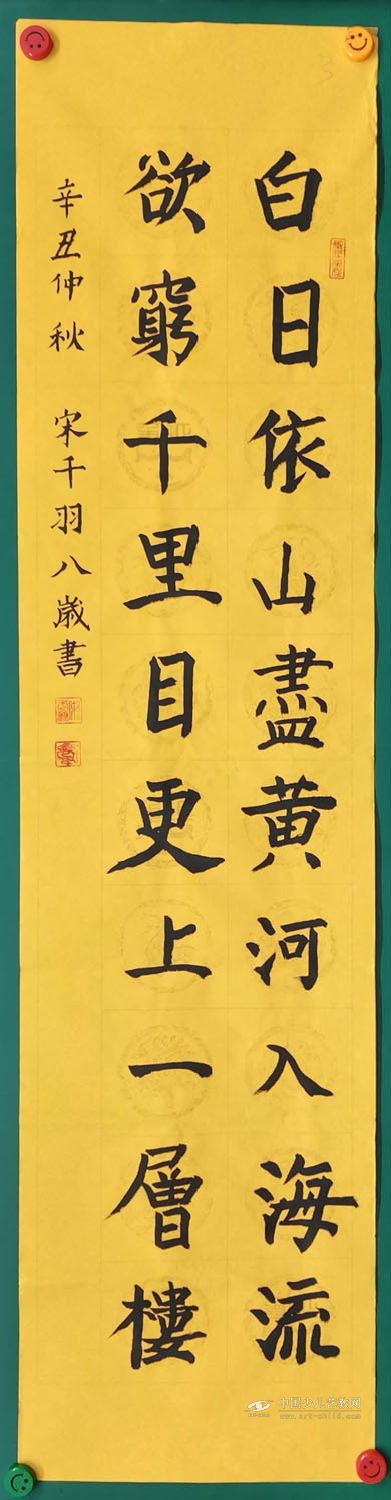 白日依山盡黄河入海流
欲窮千里目更上一層樓
辛丑仲秋 宋千羽八歲書
中国少儿艺教网
www.art-child.com